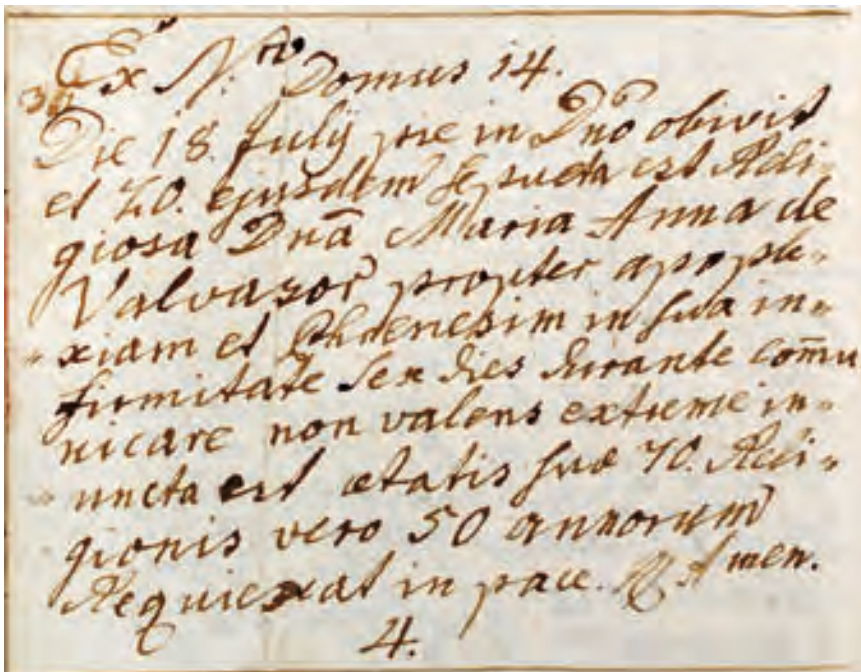 Ex N.ro Domus 14.
Die 18. Julij pie in Dno obivit
et 20. ejusdem sepulta est Reli-
giosa Dnã Maria Anna de
Valvasor propter apople-
xiam et Phrenesim in sua in-
firmitate sex dies durante com̃u
nicare non valens extreme in-
uncta est ætatis suæ 70. Reli-
gionis vero 50 annorum
Requiescat in pace. R. Amen.
4.